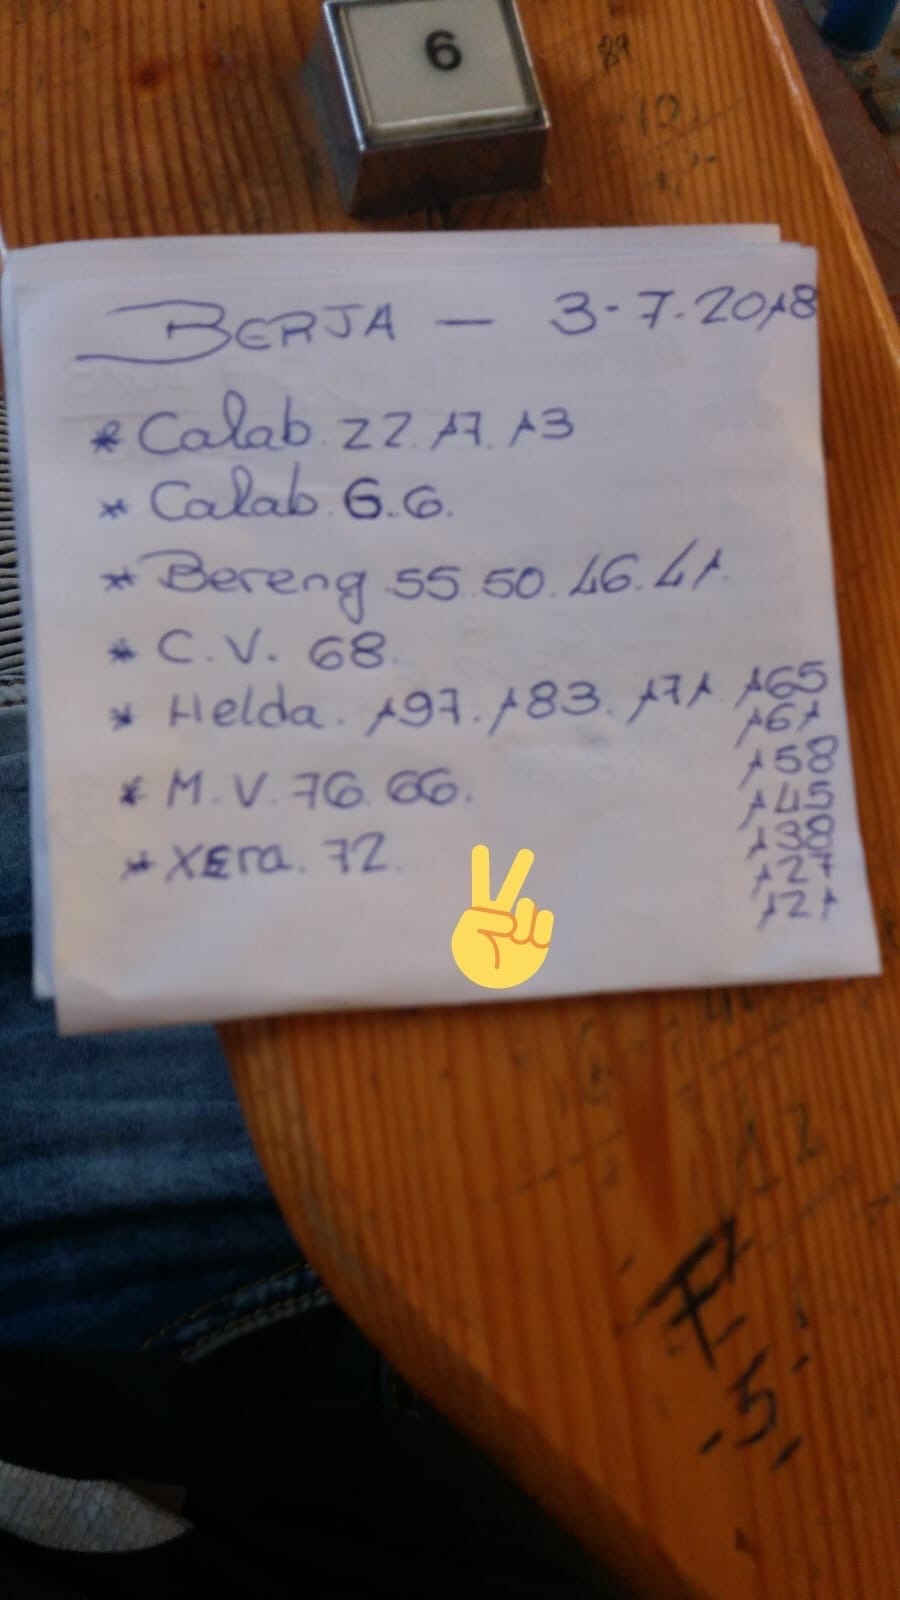 6
BERJA — 3-7.2018
* Calab. 22. 17. 13
* Calab. 6.6.
* Bereng 55.50.46.41.
* C.V. 68.
* Helda. 197.183. 171 165
161
158
145
138
127
121
* M.V. 76. 66.
* XEra. 72.
12
F
-5-